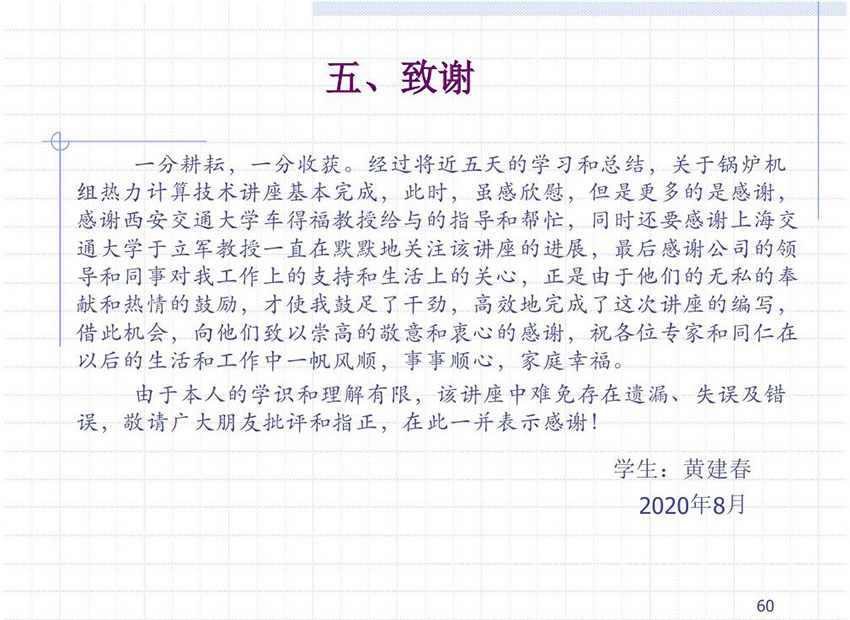 五、致谢
一分耕耘，一分收获。经过将近五天的学习和总结，关于锅炉机
组热力计算技术讲座基本完成，此时，虽感欣慰，但是更多的是感谢，
感谢西安交通大学车得福教授给与的指导和帮忙，同时还要感谢上海交
通大学于立军教授一直在默默地关注该讲座的进展，最后感谢公司的领
导和同事对我工作上的支持和生活上的关心，正是由于他们的无私的奉
献和热情的鼓励，才使我鼓足了干劲，高效地完成了这次讲座的编写，
借此机会，向他们致以崇高的敬意和衷心的感谢，祝各位专家和同仁在
以后的生活和工作中一帆风顺，事事顺心，家庭幸福。
由于本人的学识和理解有限，该讲座中难免存在遗漏、失误及错
误，敬请广大朋友批评和指正，在此一并表示感谢！
学生：黄建春
2020年8月
60